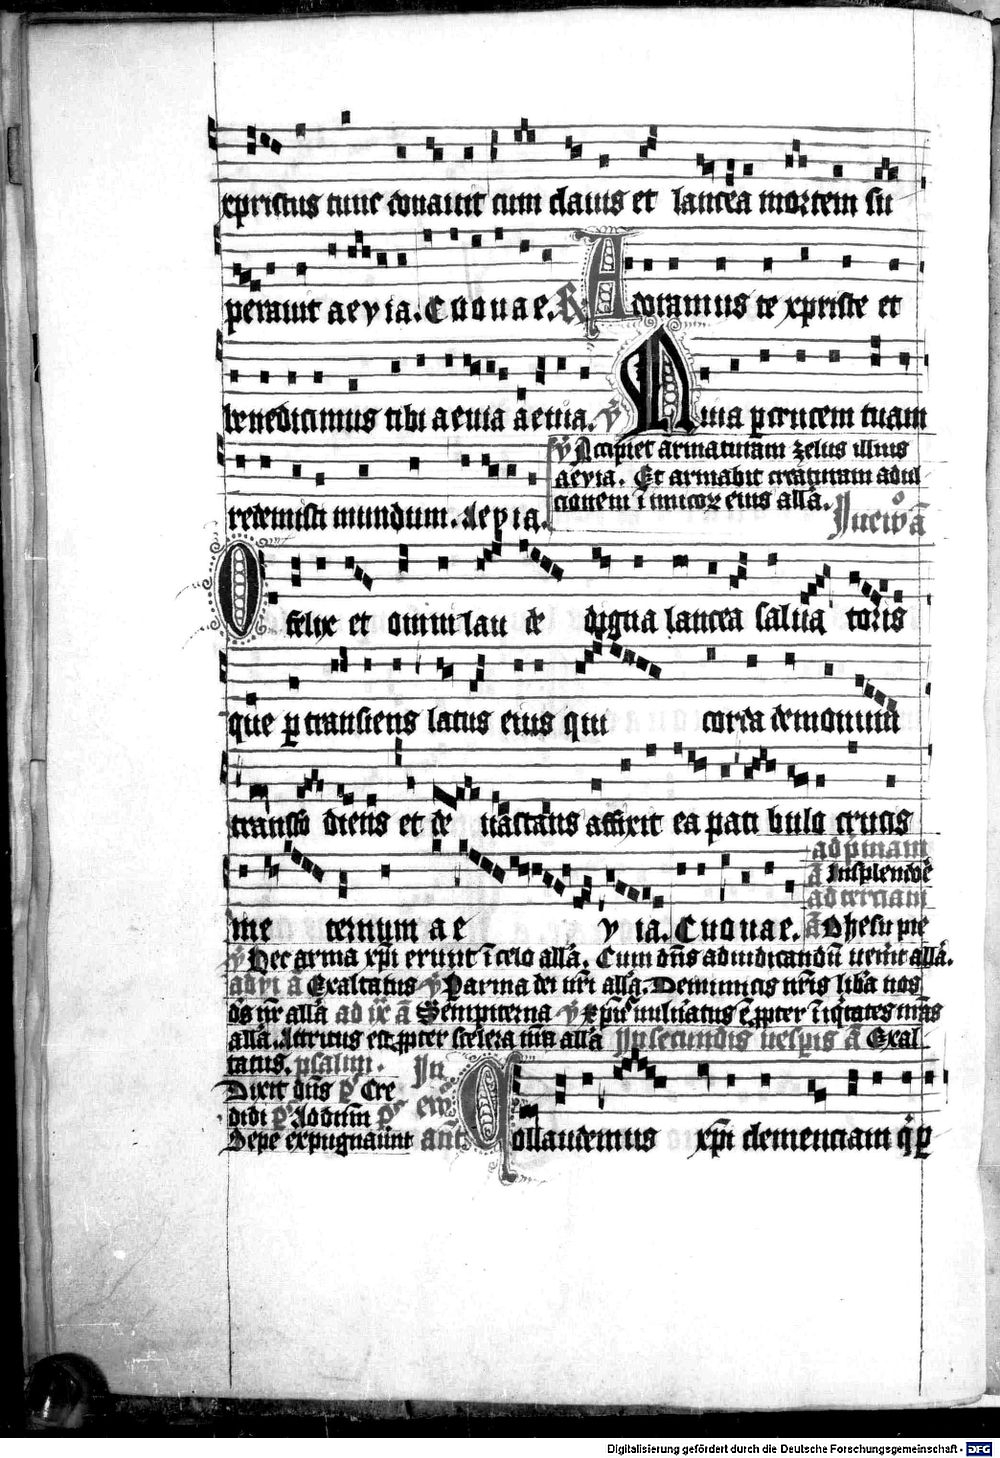 xpristus tunc donauit cum clauis et lancea mortem su
perauit aevia. Euouae. R Adoramus te xpriste et
benedicimus tibi aeuia aeuia. v Quia p crucem tuam
v Accipiet armaturam zelus illius
aevia. Et armabit creaturam ad ul
cionem inimicoz eius alla.
redemisti mundum. Aevia.
O felix et omni lau de digna lancea salua toris
que p transiens latus eius qui corda demonum
transfo diens et de uastans affixit ea pati bulo crucis
ad primam
a Insplendoe
ad terciam
me ternum ae via. Euouae. a O hesu pie
v Hec arma xpi erunt i celo alla. Cum dns ad iudicandu uenit alla.
ad vi a Exaltatus v Parma dei nri alla. De inimicis nris liba nos
ds nr alla ad ix a Sempiterna v xpus uulnatus e ppter iiqtates nras
alla. Attritus est ppter scelera nra alla In secundis uespis a Exal
tatus. psalm.
Dixit dns ps Cre
didi ps Ad dnm ps
Sepe expugnauunt ant Collaudemus xpi clemenciam q p
Digitalisierung gefördert durch die Deutsche Forschungsgemeinschaft - DFG